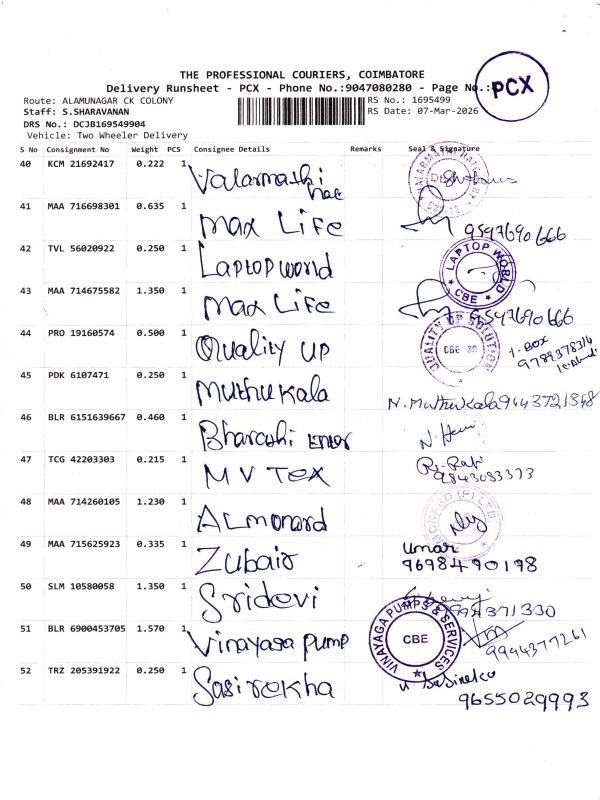 THE PROFESSIONAL COURIERS, COIMBATORE
Delivery Runsheet - PCX - Phone No.:9047080280 - Page No.:
PCX
Route: ALAMUNAGAR CK COLONY
RS No.: 1695499
Staff: S.SHARAVANAN
RS Date: 07-Mar-2026
DRS No.: DCJB169549904
Vehicle: Two Wheeler Delivery
S No Consignment No Weight PCS Consignee Details Remarks Seal & Signature
40 KCM 21692417 0.222 1 Valarmathi
41 MAA 716698301 0.635 1 Max Life 9597690666
42 TVL 56020922 0.250 1 Laptop world LAPTOP WORLD CBE
43 MAA 714675582 1.350 1 Max Life 9597690666
44 PRO 19160574 0.500 1 Quality UP QUALITY UP SOLUTION CBE 30 1. BOX
45 PDK 6107471 0.250 1 Muthukala N. Muthukala 9443721848
46 BLR 6151639667 0.460 1 Bharathi
47 TCG 42203303 0.215 1 M V TEX 9843083373
48 MAA 714260105 1.230 1 ALMonard
49 MAA 715625923 0.335 1 Zubair Umar 9698490198
50 SLM 10580058 1.350 1 Sridevi 9994371330
51 BLR 6900453705 1.570 1 Vinayaga pump VINAYAGA PUMPS & SERVICES CBE 9994377261
52 TRZ 205391922 0.250 1 Sasirekha 9655029993